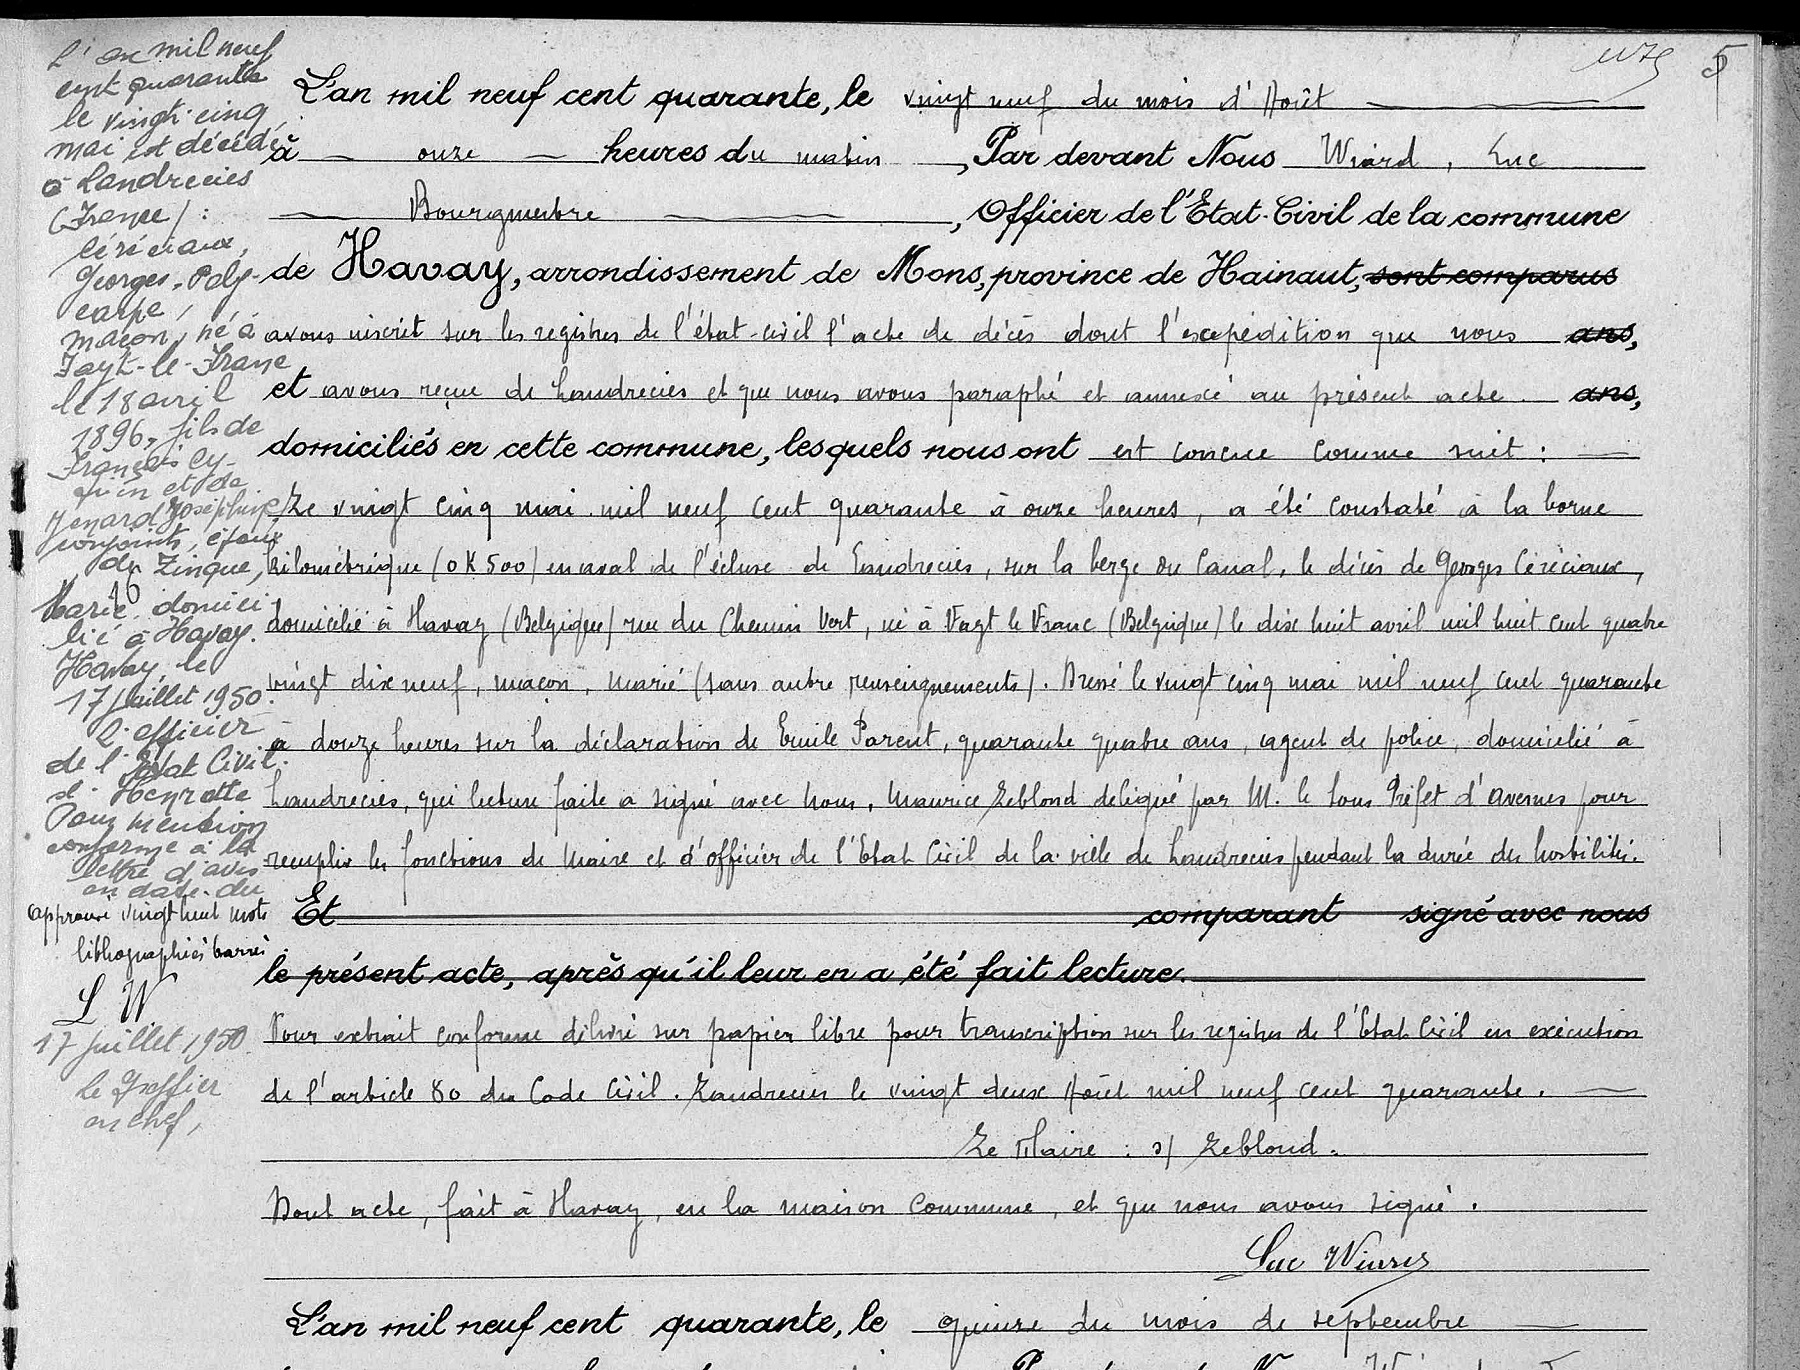 5
L'an mil neuf
cent quarante
le vingt-cinq
mai est décédé
à Landrecies
(France) :
Céréciaux,
Georges, Poly-
carpe,
maçon, né à
Fayt-le-Franc
le 18 avril
1896, fils de
François Cy-
et de
Jenard Joséphine
conjoints, époux
de Zinque,
Marie domici-
lié à Havay.
Havay, le
17 juillet 1950.
L'officier
de l'Etat Civil.
s/ Heyratte
Pour mention
conforme à la
lettre d'avis
en date du
approuvé vingt huit mots
lithographiés barrés
L W
17 juillet 1950
le Greffier
en chef,
L'an mil neuf cent quarante, le vingt neuf du mois d'Août
à onze heures du matin, Par devant Nous Wiard, Luc
Bourgmestre, Officier de l'Etat-Civil de la commune
de Havay, arrondissement de Mons, province de Hainaut, sont comparus
avons inscrit sur les registres de l'état-civil l'acte de décès dont l'expédition que nous ans,
et avons reçue de Landrecies et que nous avons paraphé et annexé au présent acte. ans,
domiciliés en cette commune, lesquels nous ont est concue comme suit :
Le vingt cinq mai mil neuf cent quarante à onze heures, a été constaté à la borne
kilométrique (0K500) en aval de l'écluse de Landrecies, sur la berge du Canal, le décès de Georges Céréciaux,
domicilié à Havay (Belgique) rue du Chemin Vert, né à Fayt le Franc (Belgique) le dix huit avril mil huit cent quatre
vingt dix neuf, maçon, marié (sans autre renseignements). Dressé le vingt cinq mai mil neuf cent quarante
à douze heures sur la déclaration de Emile Parent, quarante quatre ans, agent de police, domicilié à
Landrecies, qui lecture faite a signé avec Nous, Maurice Leblond delégué par M. le Sous Préfet d'avesnes pour
remplir les fonctions de Maire et d'officier de l'Etat Civil de la ville de Landrecies pendant la durée des hostilités.
Et comparant signé avec nous
le présent acte, après qu'il leur en a été fait lecture.
Pour extrait conforme délivré sur papier libre pour transcription sur les registres de l'Etat Civil en exécution
de l'article 80 du Code Civil. Landrecies le vingt deux Août mil neuf cent quarante.
Le Maire : s/ Leblond.
Dont acte, fait à Havay, en la maison Commune, et que nous avons signé.
Luc Wiard
L'an mil neuf cent quarante, le quinze du mois de septembre